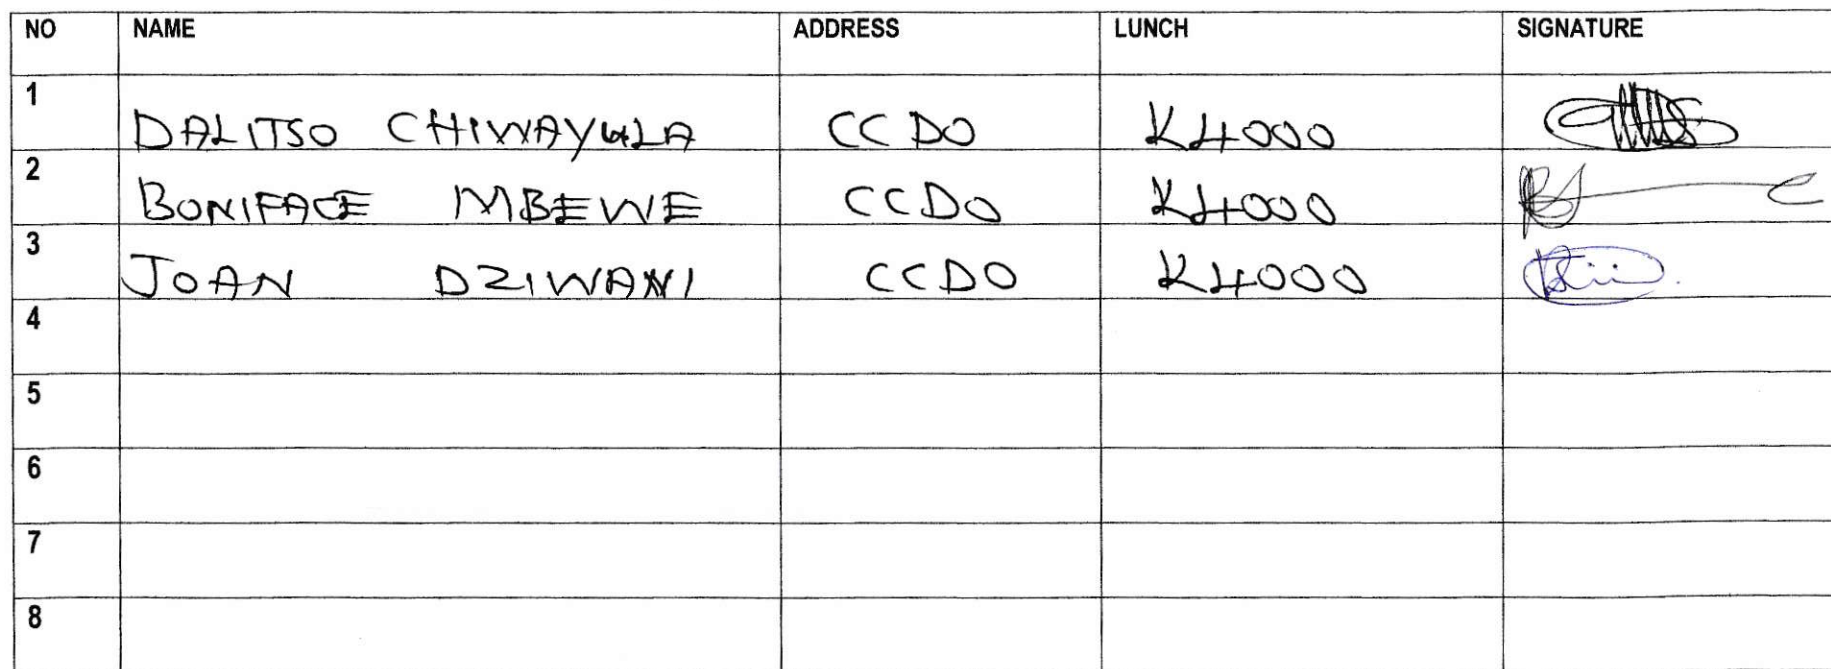 NO NAME ADDRESS LUNCH SIGNATURE
1 DALITSO CHIWAYULA CCDO K4000
2 BONIFACE MBEWE CCDO K4000
3 JOAN DZIWANI CCDO K4000
4
5
6
7
8